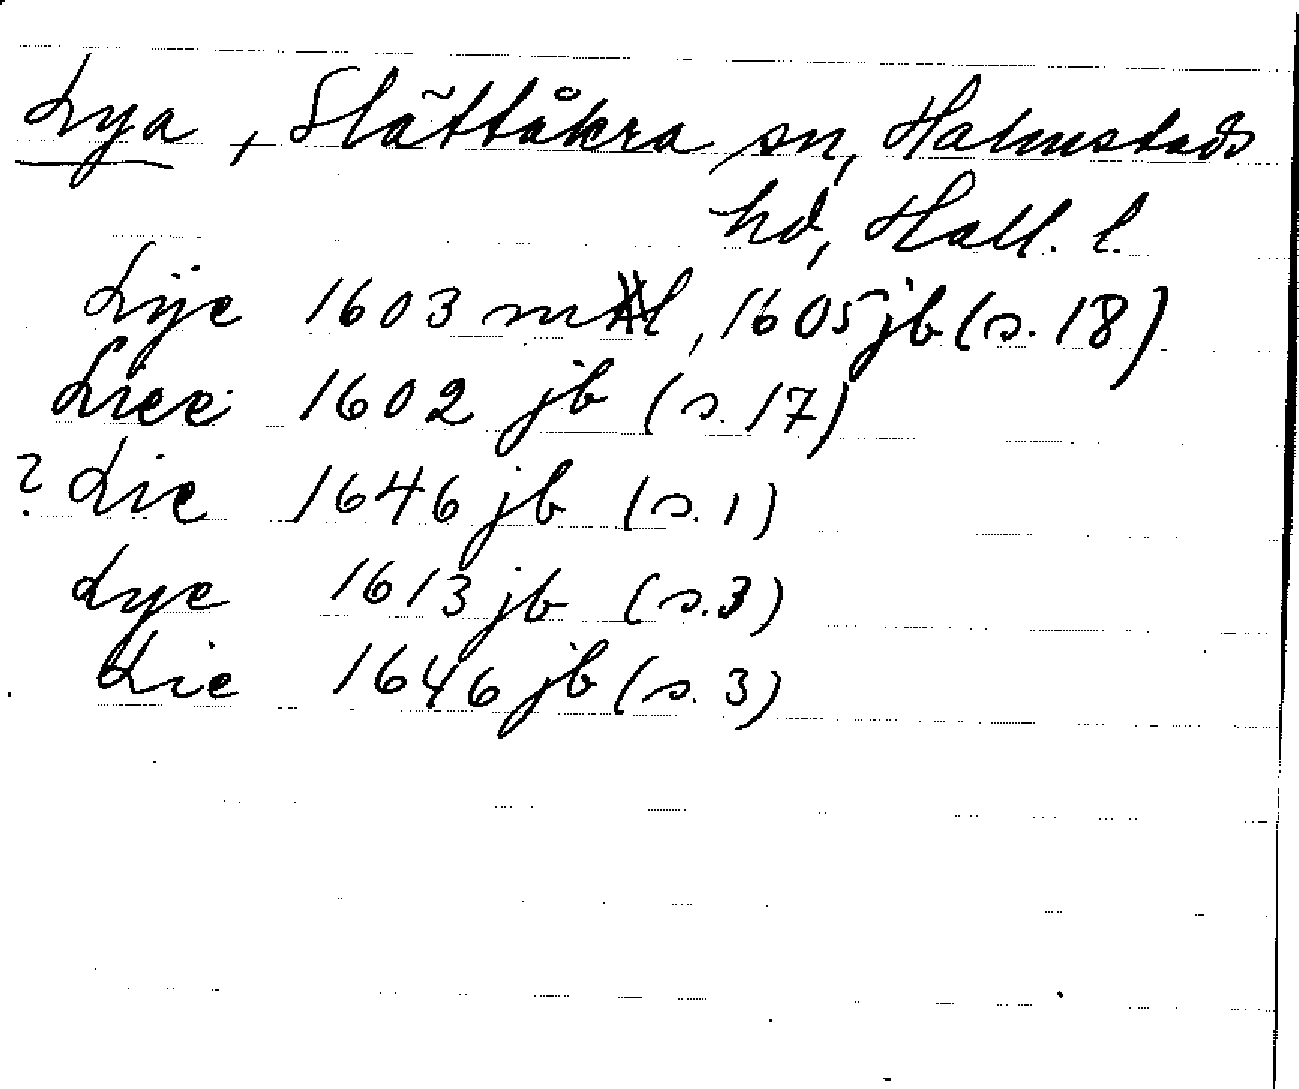 Lya, Slättåkra sn, Halmstads
hd, Hall. l.
Lÿe 1603 ml, 1605 jb (s. 18)
Liee 1602 jb (s. 17)
? Lie 1646 jb (s. 1)
Lye 1613 jb (s. 3)
Lie 1646 jb (s. 3)